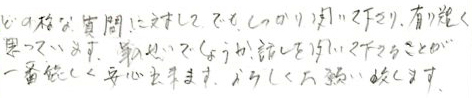 どの様な質問に対してでもしっかり聞いて下さり、有り難く
思っています。年のせいでしょうか話しを聞いて下さることが
一番嬉しく安心出来ます。よろしくお願い致します。